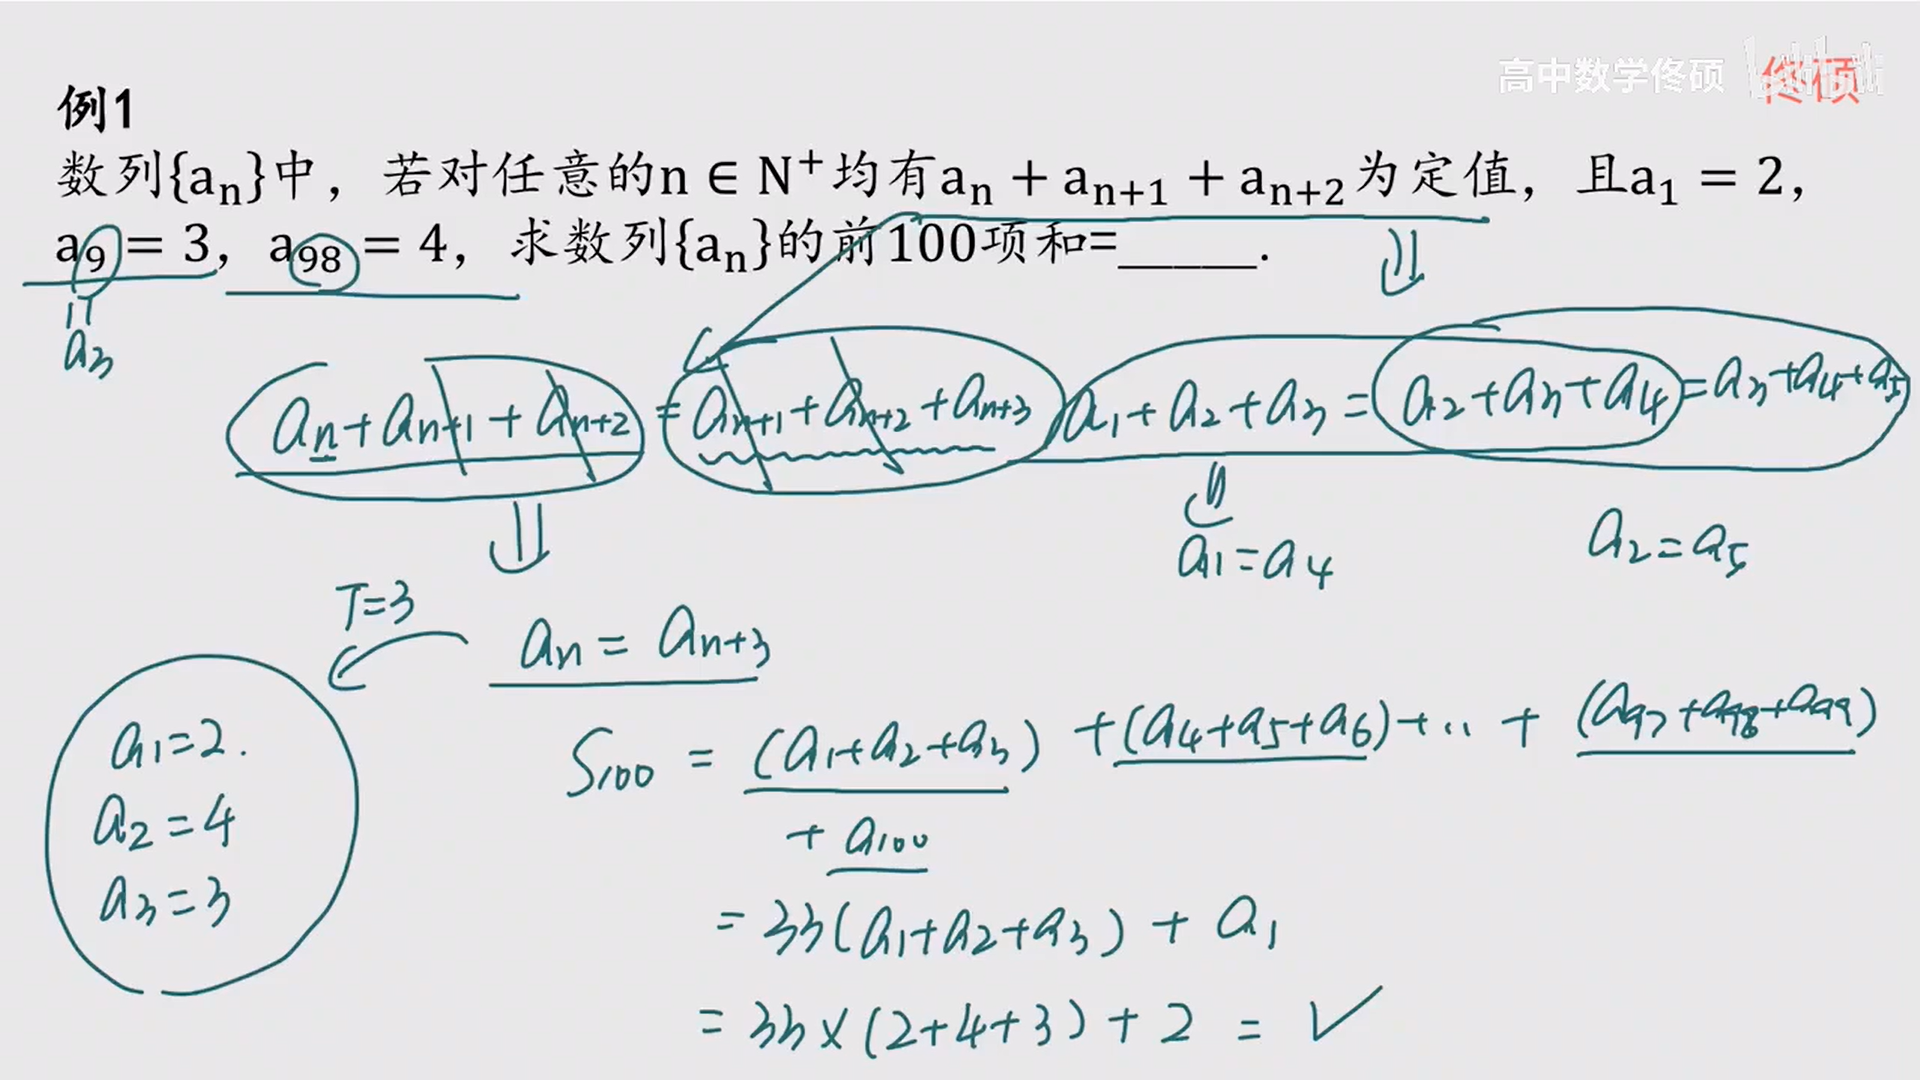 高中数学佟硕 佟硕
例1
数列{aₙ}中，若对任意的n ∈ N⁺均有aₙ + aₙ₊₁ + aₙ₊₂为定值，且a₁ = 2，
a₉ = 3，a₉₈ = 4，求数列{aₙ}的前100项和=_____.
a₃
aₙ+aₙ₊₁+aₙ₊₂ = aₙ₊₁+aₙ₊₂+aₙ₊₃ a₁+a₂+a₃ = a₂+a₃+a₄ = a₃+a₄+a₅
a₁=a₄ a₂=a₅
T=3
aₙ = aₙ₊₃
a₁=2.
a₂=4
a₃=3
S₁₀₀ = (a₁+a₂+a₃) +(a₄+a₅+a₆)+‥+ (a₉₇+a₉₈+a₉₉)
+ a₁₀₀
= 33(a₁+a₂+a₃) + a₁
= 33×(2+4+3)+2 = ✓